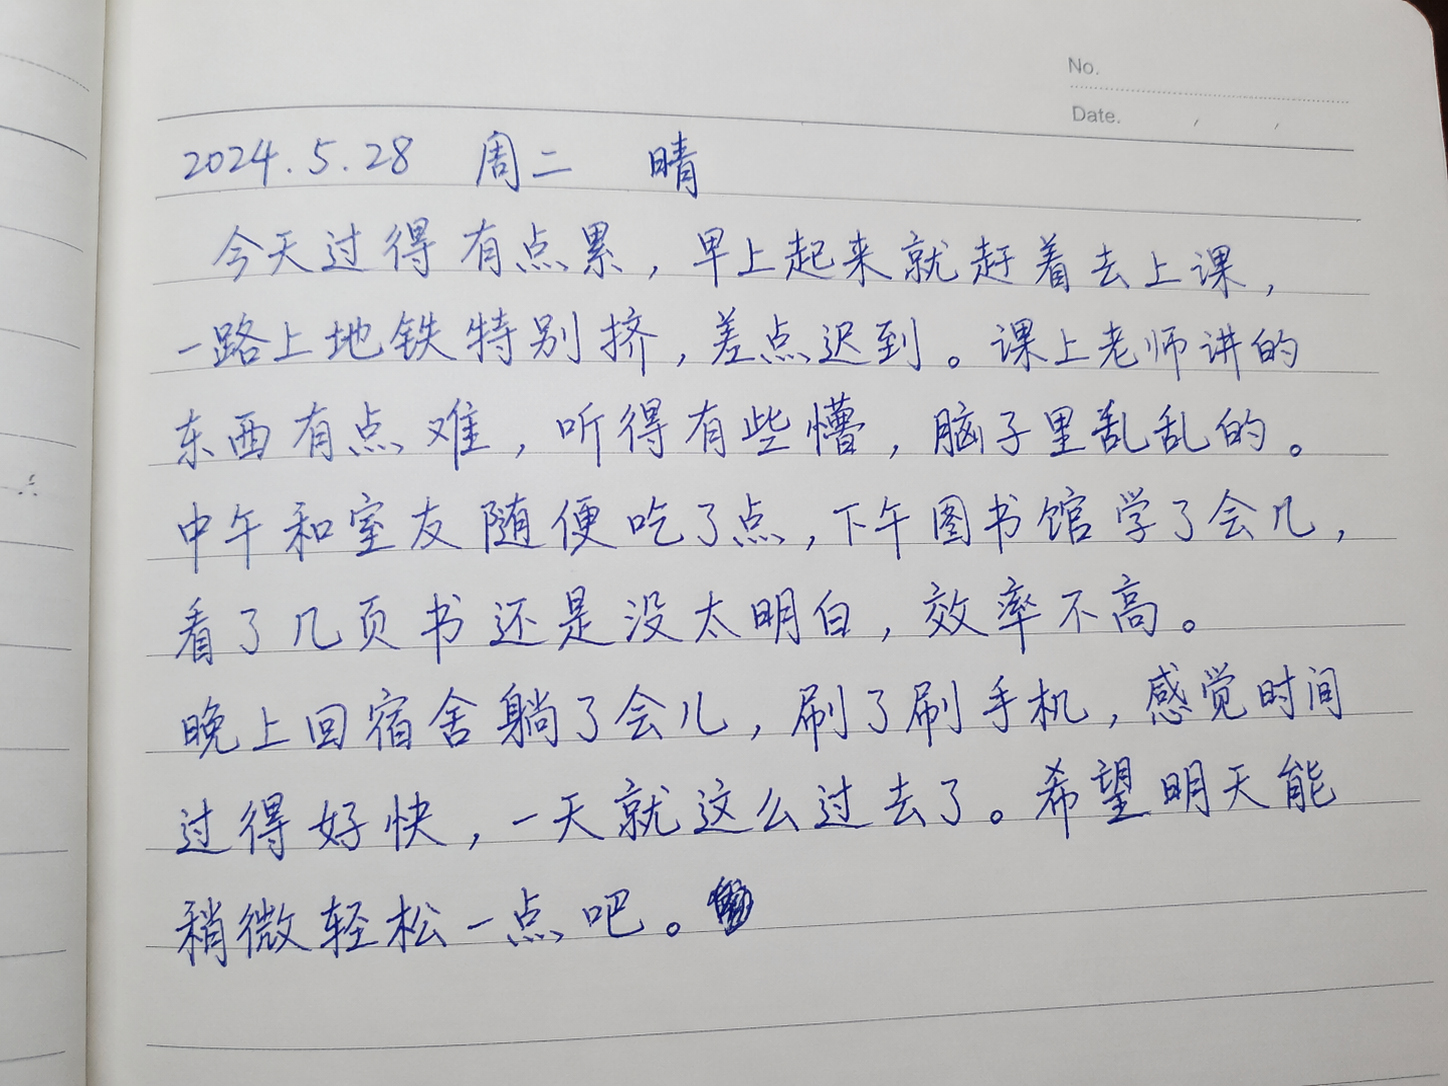 No.
Date.
2024.5.28 周二 晴
今天过得有点累，早上起来就赶着去上课，
一路上地铁特别挤，差点迟到。课上老师讲的
东西有点难，听得有些懵，脑子里乱乱的。
中午和室友随便吃了点，下午图书馆学了会儿，
看了几页书还是没太明白，效率不高。
晚上回宿舍躺了会儿，刷了刷手机，感觉时间
过得好快，一天就这么过去了。希望明天能
稍微轻松一点吧。